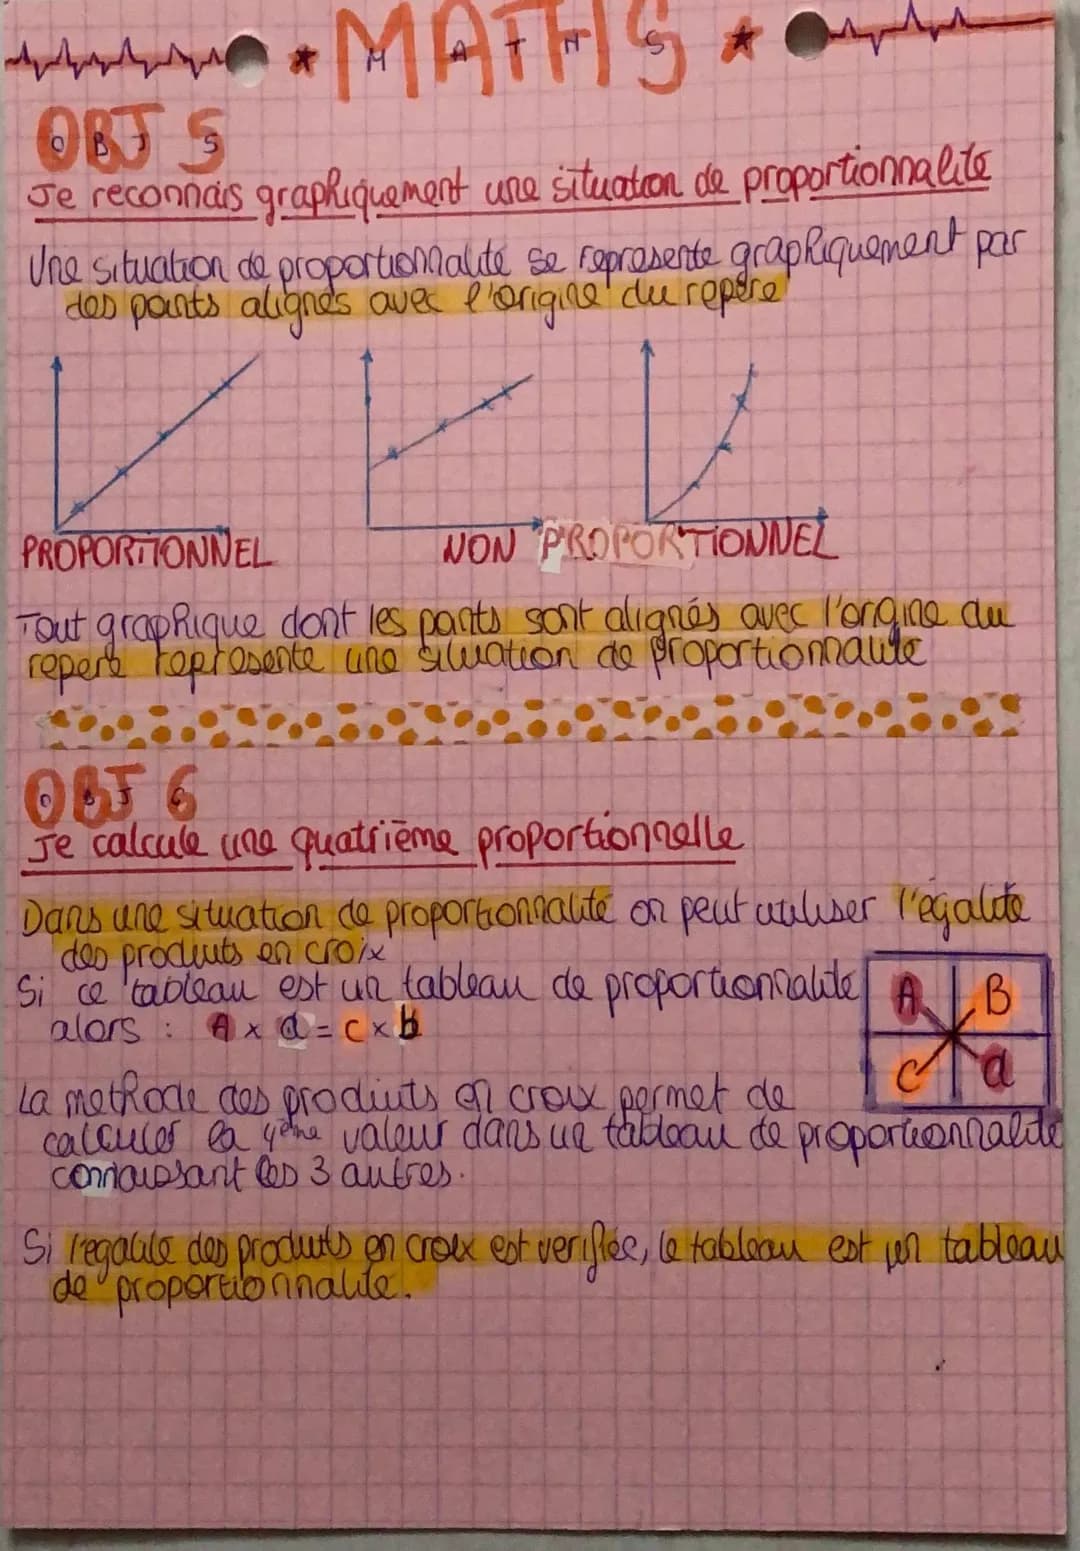 MATHS
OBJ 5
Je reconnais graphiquement une situation de proportionnalité
Une situation de proportionnalité se représente graphiquement par
des points alignés avec l'origine du repère
PROPORTIONNEL NON PROPORTIONNEL
Tout graphique dont les points sont alignés avec l'origine du
repère représente une situation de proportionnalité
OBJ 6
Je calcule une quatrième proportionnelle
Dans une situation de proportionnalité on peut utiliser l'égalité
des produits en croix
Si ce tableau est un tableau de proportionnalité
alors : A x d = c x b
A B
C d
La méthode des produits en croix permet de
calculer la 4ème valeur dans un tableau de proportionnalité
connaissant les 3 autres.
Si l'égalité des produits en croix est verifiée, le tableau est un tableau
de proportionnalité.